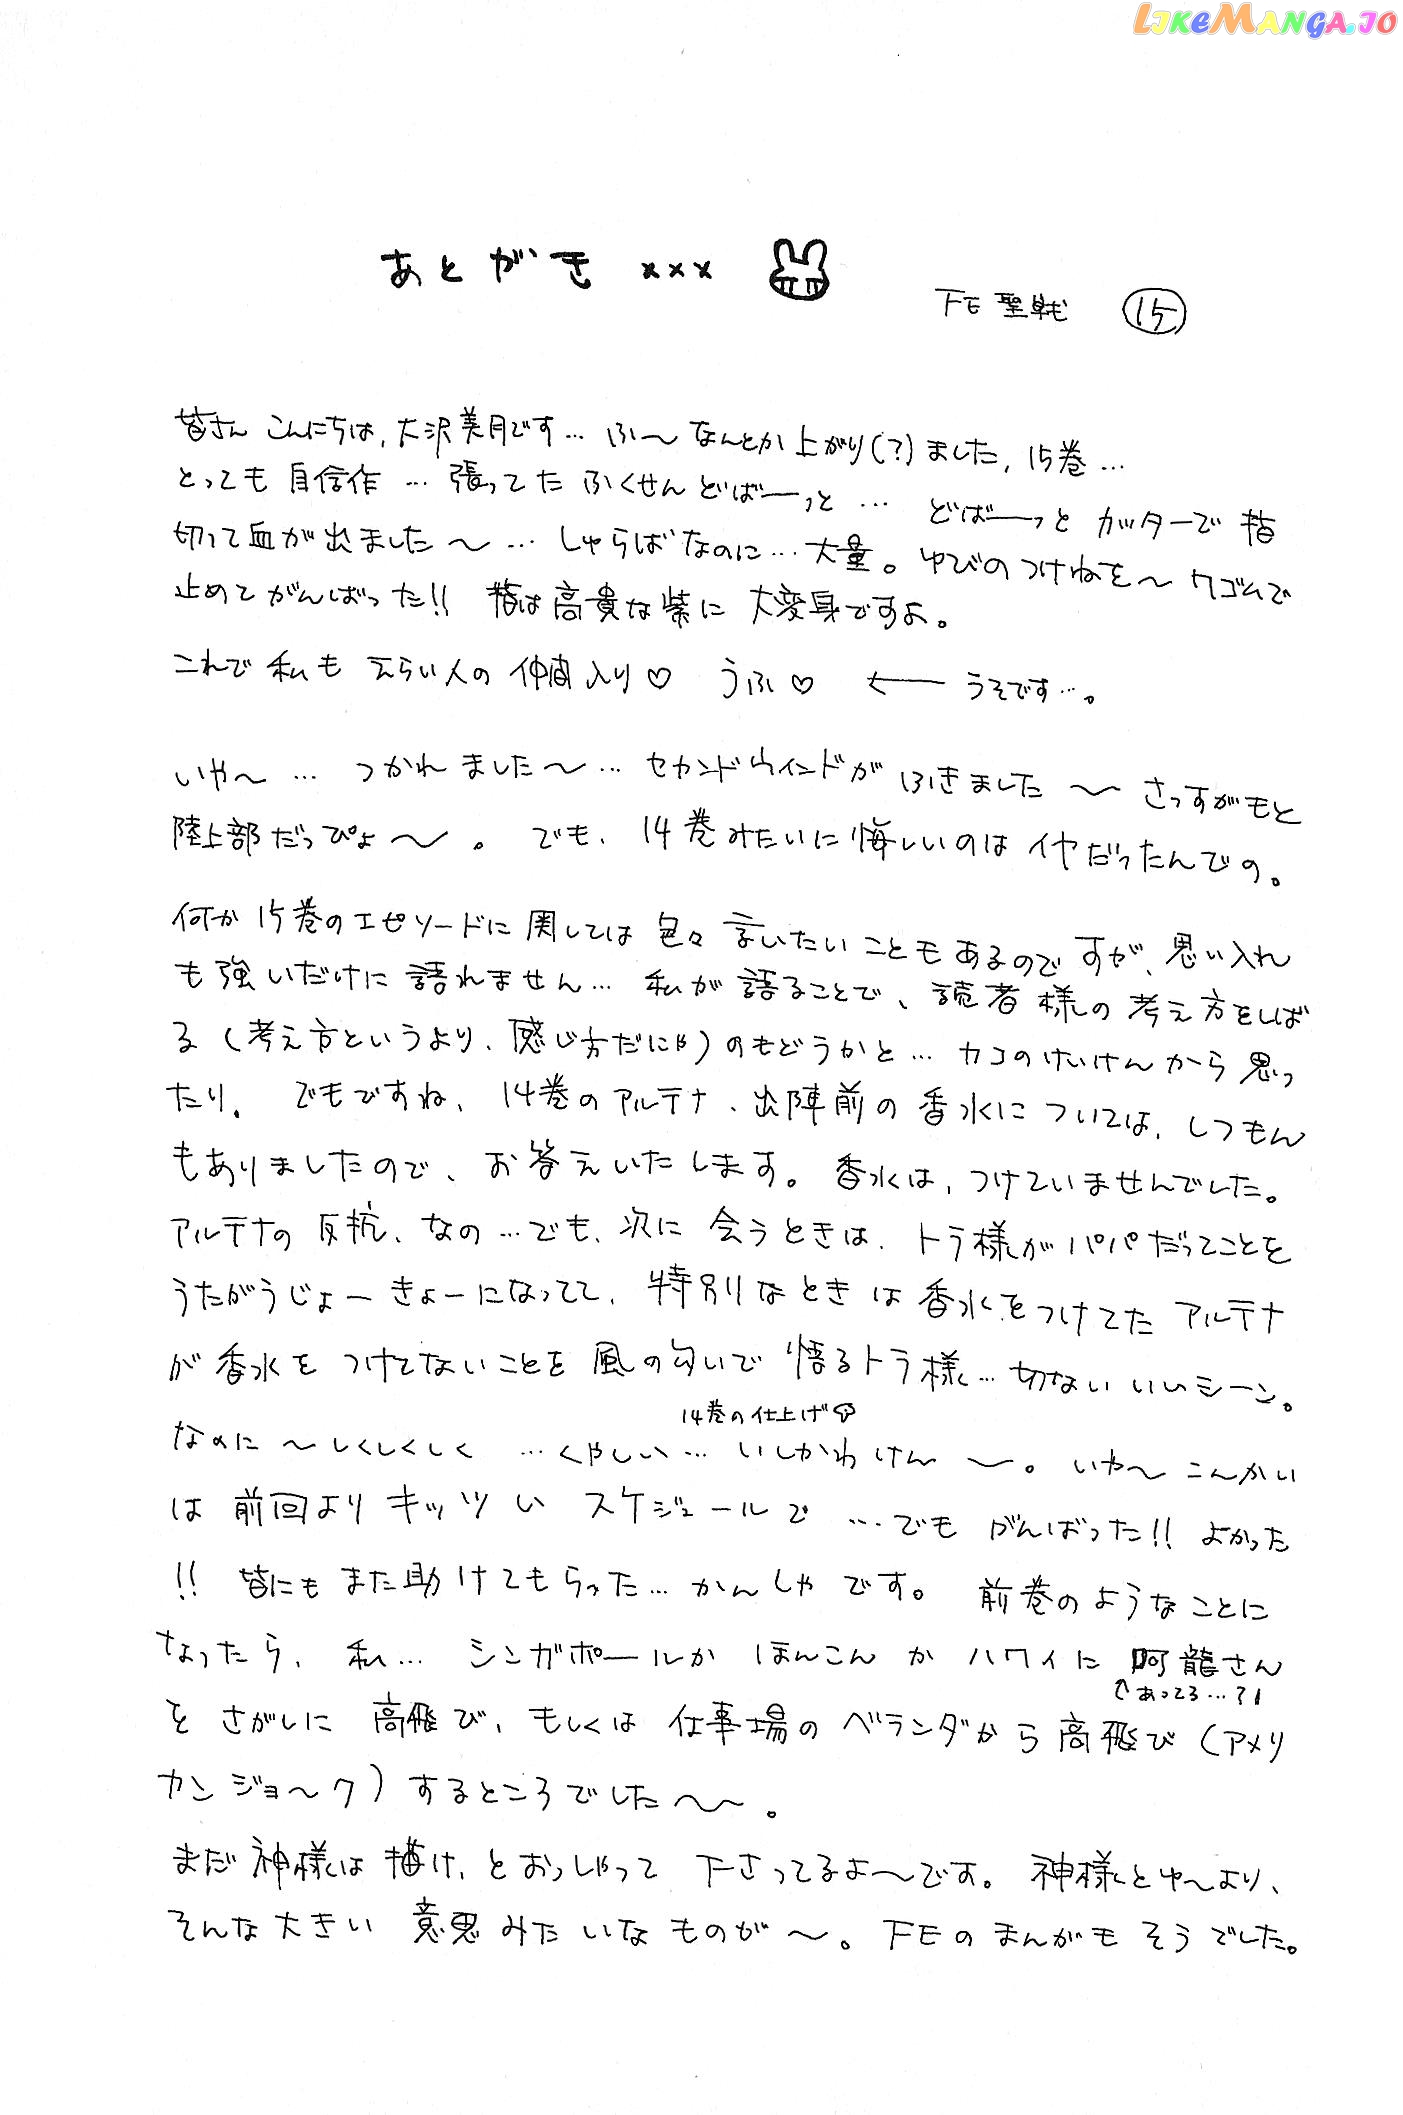 LIKEMANGA.IO
あとがき xxx
FE聖戦 15
皆さん こんにちは,大沢美月です… ふ〜 なんとか上がり(?)ました,15巻…
とっても 自信作 … 張ってた ふくせんどばーっと … どばーっと カッターで 指
切って血が出ました〜 … しゅらばなのに…大量。ゆびのつけねを〜ワゴムで
止めてがんばった!! 指は高貴な紫に 大変身ですよ。
これで 私も えらい人の 仲間入り♡ うふ♡ ← うそです…。
いや〜 … つかれました〜… セカンドウインドが ふきました 〜 さっすがもと
陸上部だっぴょ〜。 でも、14巻みたいに悔しいのはイヤだったんでの。
何か15巻のエピソードに関しては 色々 言いたいこともあるのですが、思い入れ
も強いだけに語れません… 私が語ることで、読者様の考え方をしば
る(考え方というより、感じ方だにゃ)のもどうかと… カコのけいけんから思っ
たり。 でもですね、14巻のアルテナ、出陣前の香水については、しつもん
もありましたので、お答えいたします。香水は、つけていませんでした。
アルテナの反抗、なの…でも、次に会うときは、トラ様がパパだってことを
うたがうじょーきょーになってて、特別なときは香水をつけてたアルテナ
が香水をつけてないことを風の匂いで悟るトラ様…切ないいいシーン。
14巻の仕上げ
なのに〜しくしくしく …くやしい… いしかわけん 〜。いや〜こんかい
は前回よりキッツいスケジュールで …でもがんばった!! よかった
!! 皆にもまた助けてもらった…かんしゃです。前巻のようなことに
なったら、私… シンガポールか ほんこん か ハワイに 阿龍さん
↑あってる…?!
をさがしに 高飛び、もしくは 仕事場のベランダから高飛び(アメリ
カンジョ〜ク)するところでした〜〜。
まだ神様は描け、とおっしゃって 下さってるよ〜です。神様とゆ〜より、
そんな大きい 意思みたいなものが〜。FEのまんがもそうでした。